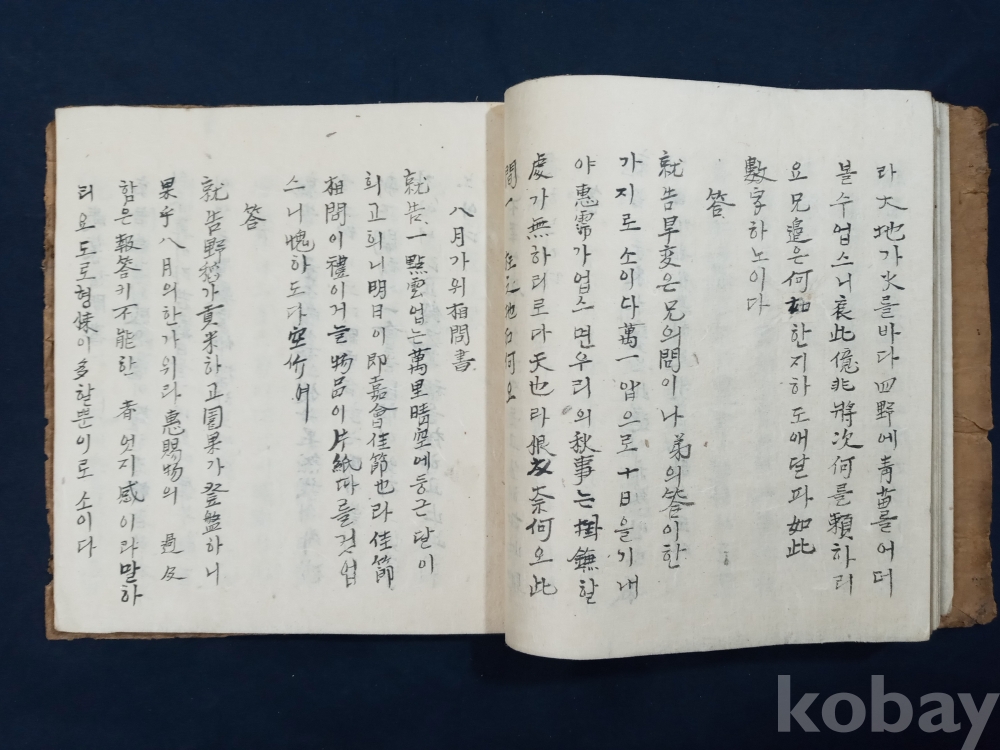 라 大地가 火를바다 四野에 靑苗를어더
볼수업스니 哀此億兆將次何를 賴하리
요 兄邊은何如한지하도애달파 如此
數字하노이다
答
就告旱変은 兄의問이나 弟의答이한
가지로소이다 萬一 압으로 十日을기내
야 惠霈가업스면우리의秋事는 掛鎌할
處가 無하리로다 天也라 恨 奈何오 此
間
八月가위相問書
就告 一點雲업는 萬里晴空에둥근달이
희고희니 明日이 即嘉會佳節也라 佳節
相問이 禮이거늘 物品이 片紙따를것업
스니 愧하도다
答
就告野 가 貢米하고 園果가 登盤하니
果乎八月의한가위라 惠賜物의 過
함은 報答키不能한 者엇지 感이라말하
리요도로혀 이多할뿐이로소이다
kobay